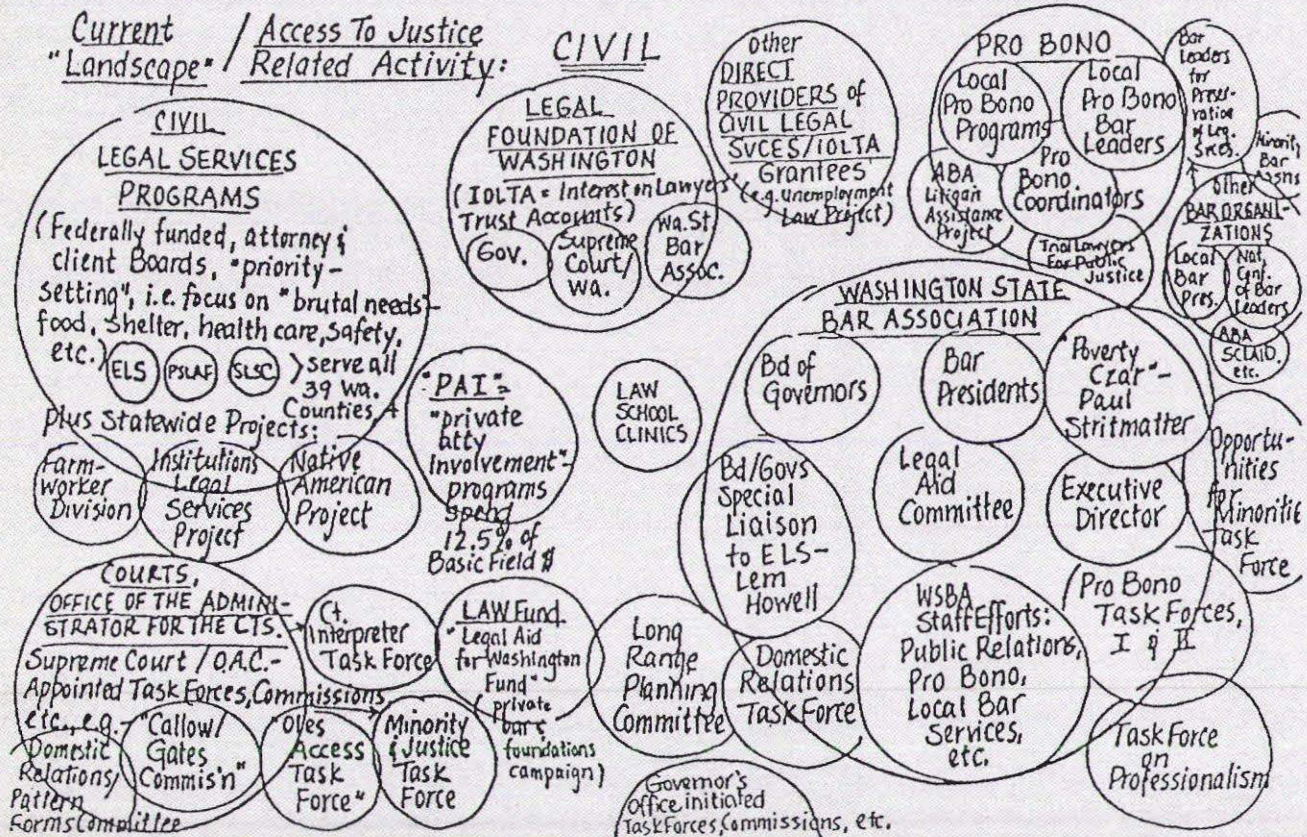 Current
"Landscape" / Access To Justice
Related Activity:
CIVIL
CIVIL
LEGAL SERVICES
PROGRAMS
(Federally funded, attorney &
client Boards, "priority-
setting", i.e. focus on "brutal needs"-
food, shelter, health care, safety,
etc.)
ELS
PSLAF
SLSC
serve all
39 Wa.
Counties
plus Statewide Projects:
Farm-
worker
Division
Institutions
Legal
Services
Project
Native
American
Project
LEGAL
FOUNDATION OF
WASHINGTON
(IOLTA = Interest on Lawyers'
Trust Accounts)
Gov.
Supreme
Court/
Wa.
Wa.St.
Bar
Assoc.
Other
DIRECT
PROVIDERS of
CIVIL LEGAL
SVCES/IOLTA
Grantees
(e.g. Unemployment
Law Project)
PRO BONO
Local
Pro Bono
Programs
Local
Pro Bono
Bar
Leaders
ABA
Litigan
Assistance
Project
Pro
Bono
Coordinators
Trial Lawyers
For Public
Justice
Bar
Leaders
for
Preser-
vation
of Leg.
Svces.
Minority
Bar
Assns
Other
BAR ORGANI-
ZATIONS
Local
Bar
Pres.
Nat.
Conf.
of Bar
Leaders
ABA
SCLAID.
etc.
"PAI"=
"private
atty
involvement"-
programs
spend
12.5% of
Basic Field $
LAW
SCHOOL
CLINICS
WASHINGTON STATE
BAR ASSOCIATION
Bd of
Governors
Bar
Presidents
"Poverty
Czar"-
Paul
Stritmatter
Bd/Govs
Special
Liaison
to ELS-
Lem
Howell
Legal
Aid
Committee
Executive
Director
Opportu-
nities
for
Minoritie
Task
Force
WSBA
Staff Efforts:
Public Relations,
Pro Bono,
Local Bar
Services,
etc.
Pro Bono
Task Forces,
I & II
Task Force
on
Professionalism
COURTS,
OFFICE OF THE ADMINI-
STRATOR FOR THE CTS.
Supreme Court / O.A.C.-
Appointed Task Forces, Commissions
etc., e.g.-
Domestic
Relations/
Pattern
Forms Committee
"Callow/
Gates
Commis'n"
"Oles
Access
Task
Force"
Ct.
Interpreter
Task Force
Minority
& Justice
Task
Force
LAW Fund
"Legal Aid
for Washington
Fund"
(private
bar &
foundations
campaign)
Long
Range
Planning
Committee
Domestic
Relations
Task Force
Governor's
Office initiated
Task Forces, Commissions, etc.